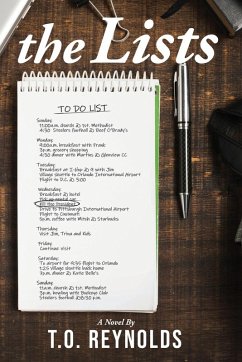 the Lists
TO DO LIST
Sunday
11:00a.m. church @ 1st. Methodist
4:30 Steelers football @ Beef O'Brady's
Monday
9:00a.m. breakfast with Frank
3p.m. grocery shopping
6:30 dinner with Martins @ Glendow CC.
Tuesday
Breakfast @ I-Hop @ 9 with Jim
Village shuttle to Orlando International Airport
Flight to D.C. @ 5:00
Wednesday
Breakfast @ hotel
Pick up rental car
Kill the President
Drive to Pittsburgh International Airport
Flight to Cincinnati
8p.m. coffee with Mitch @ Starbucks
Thursday
Visit Jim, Trina and kids
Friday
Continue visit
Saturday
To airport for 9:55 flight to Orlando
1:25 Village shuttle back home
7p.m. dinner @ Katie Belle's
Sunday
11a.m. church @ 1st. Methodist
3p.m. bowling with Buckeye Club
Steelers football @ 8:30 p.m.
A Novel By
T.O. REYNOLDS